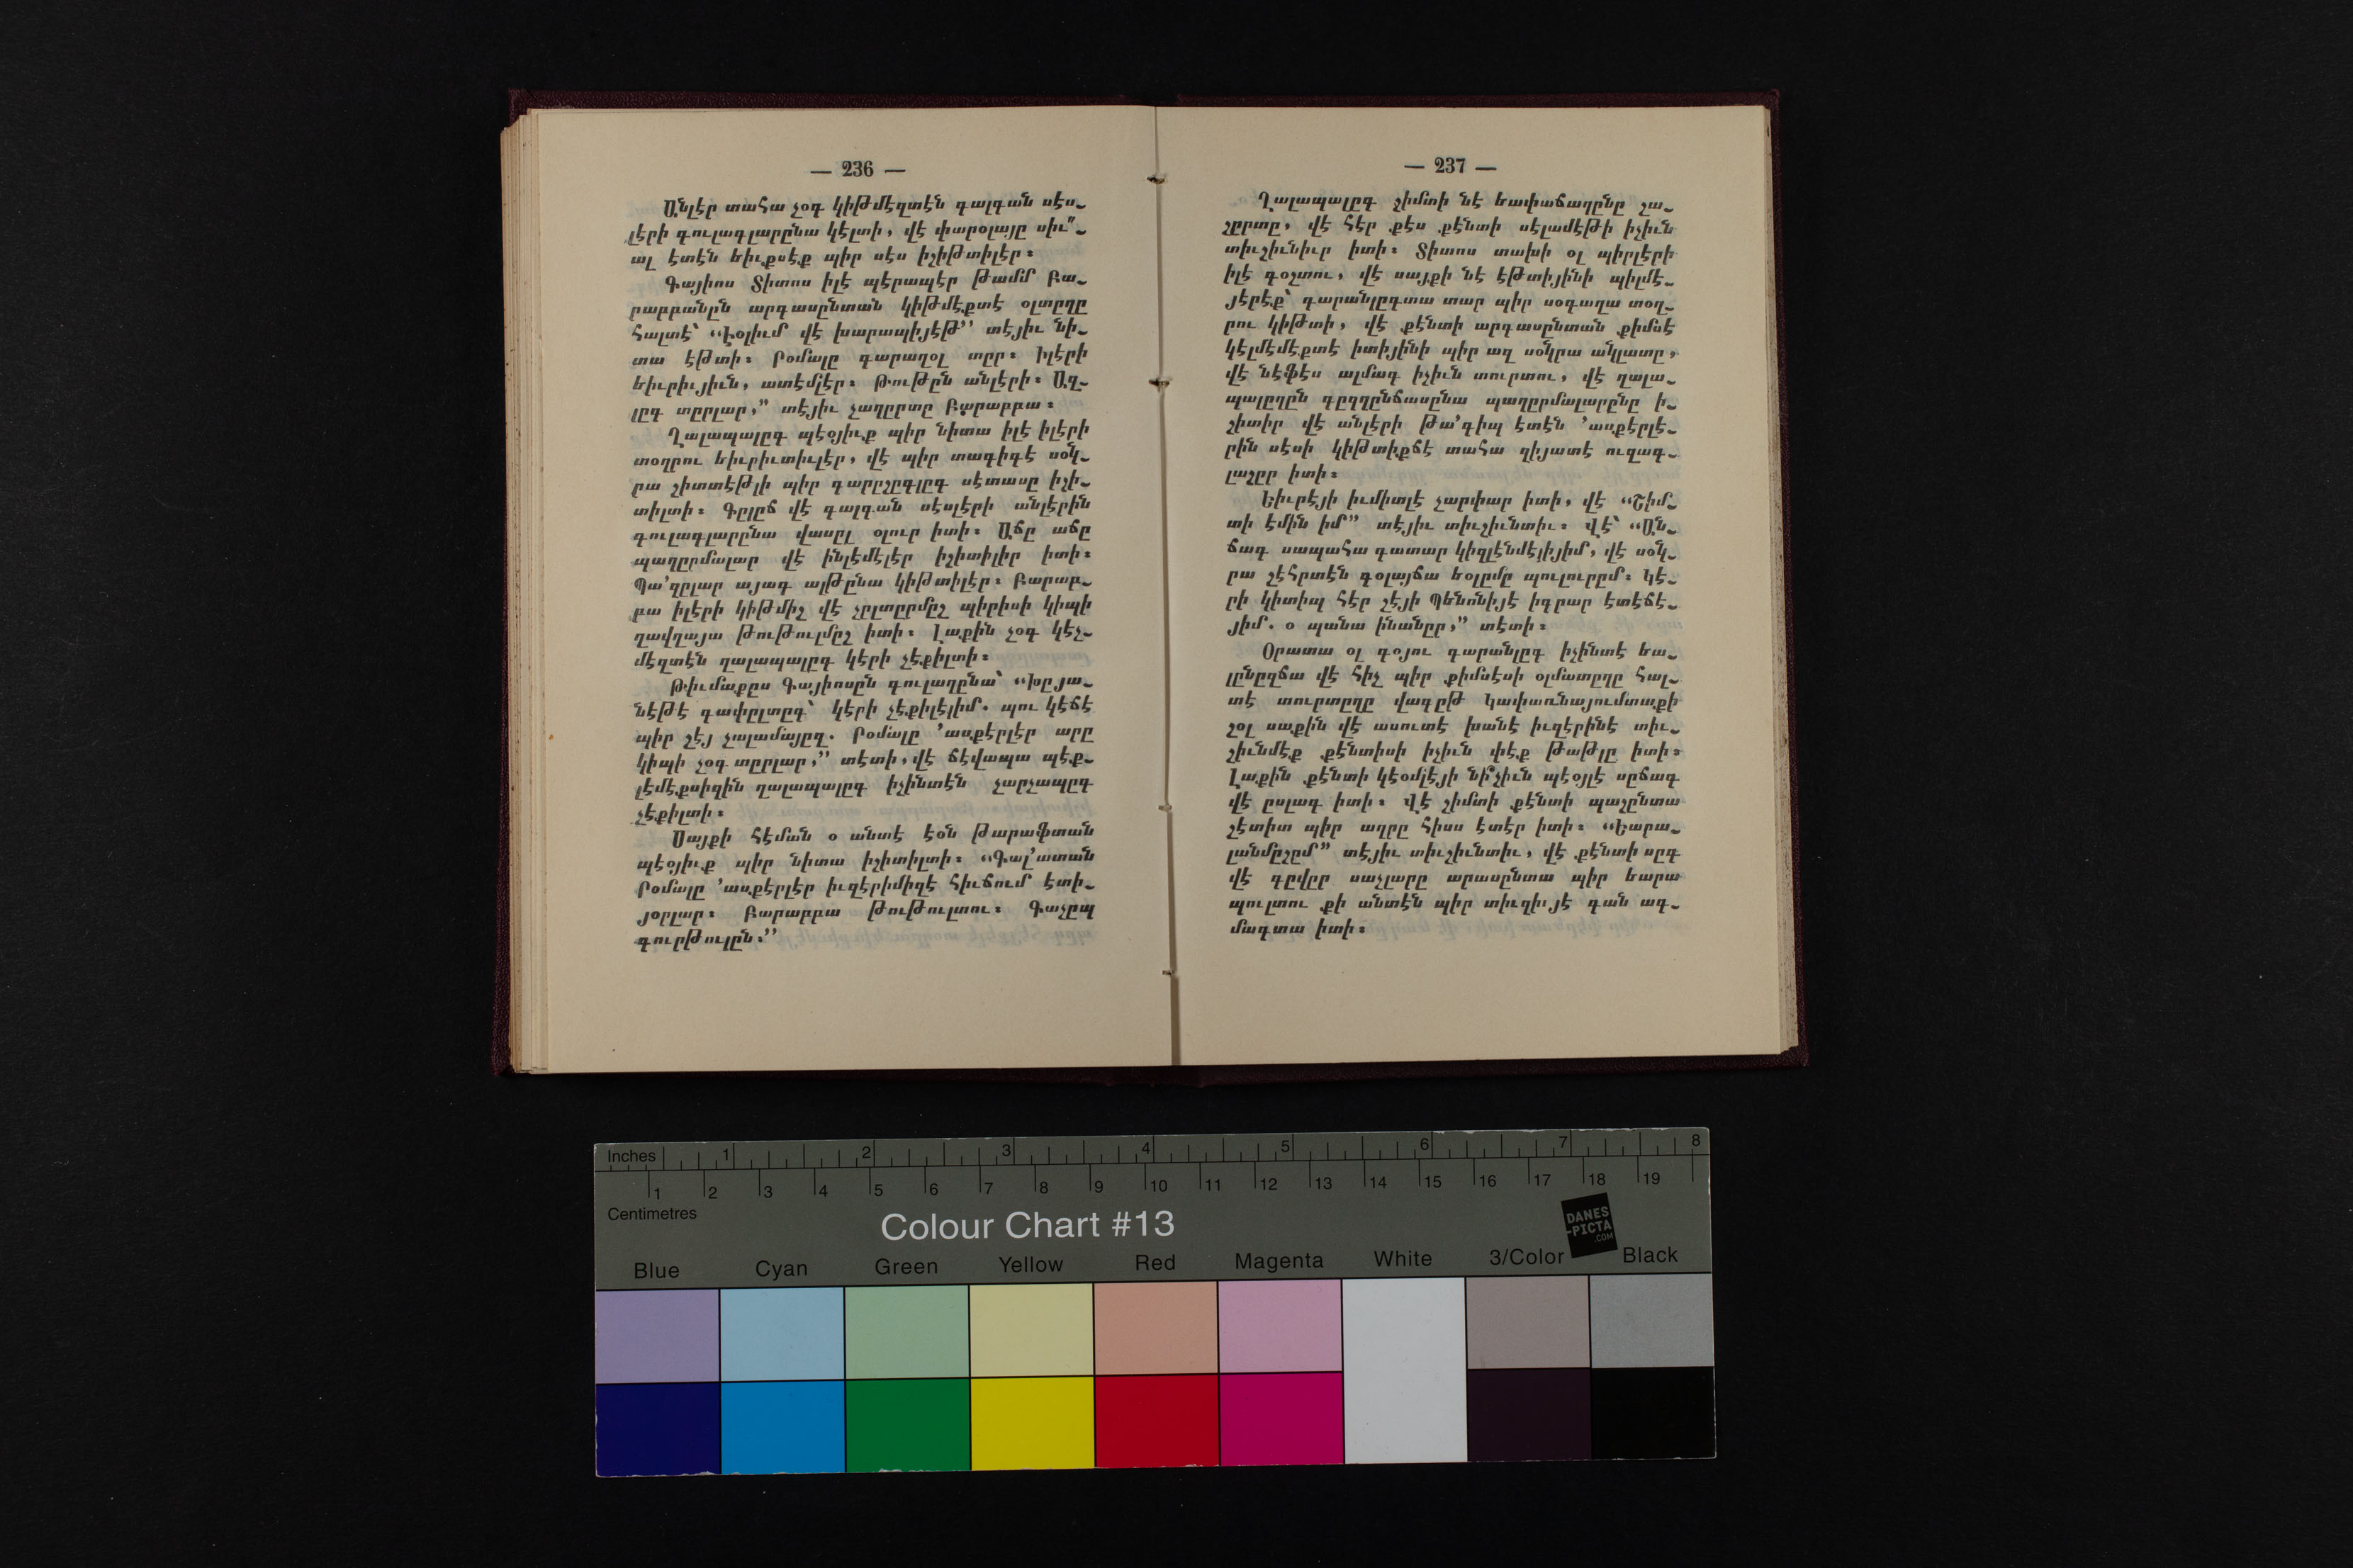 — 236 —
Անլէր տահա չօգ կիթմէզտէն գալգան սէս-
լէրի գուլագլարընա կէլտի, վէ փարօլայը սիւ՞-
ալ էտէն եիւքսէք պիր սէս իշիթտիլէր։
Գայիոս Տիտոս իլէ պէրապէր թամմ Բա-
րաբբանըն արգասընտան կիթմէքտէ օլտըղը
հալտէ՝ “Էօլիւմ վէ խարապիյէթ” տէյիւ նի-
տա էթտի։ Րօմալը գարաղօլ տըր։ Իլէրի
եիւրիւյիւն, ատէմլէր։ Թութըն անլէրի։ Ազ-
լըգ տըրլար,” տէյիւ չաղըրտը Բարաբբա։
Ղալապալըգ պէօյիւք պիր նիտա իլէ իլէրի
տօղրու եիւրիւտիւլէր, վէ պիր տագիգէ սօն-
րա շիտտէթլի պիր գարըշըգլըգ սէտասը իշի-
տիլտի։ Գըլըճ վէ գալգան սէսլէրի անլէրին
գուլագլարընա վասըլ օլուր իտի։ Աճը աճը
պաղըրմալար վէ ինլէմէլէր իշիտիլիր իտի։
Պա՚զըլար այագ ալթընա կիթտիլէր։ Բարաբ-
բա իլէրի կիթմիշ վէ չըլտըրմըշ պիրիսի կիպի
ղավղայա թութուլմըշ իտի։ Լաքին չօգ կէչ-
մէզտէն ղալապալըգ կէրի չէքիլտի։
Թիւմաքըս Գայիոսըն գուլաղընա՝ “Խըյա-
նէթէ գափըլտըգ՝ կէրի չէքիլէլիմ. պու կէճէ
պիր շէյ չալամայըզ. Րօմալը ՚ասքէրլէր արը
կիպի չօգ տըրլար,” տէտի, վէ ճէվապա պէք-
լէմէքսիզին ղալապալըգ իչինտէն չարչապըգ
չէքիլտի։
Սայքի հէման օ անտէ էօն թարաֆտան
պէօյիւք պիր նիտա իշիտիլտի։ “Գալ՚ատան
Րօմալը ՚ասքէրլէր իւզէրիմիզէ հիւճում էտի-
յօրլար։ Բարաբբա թութուլտու։ Գաչըպ
գուրթուլըն։”
— 237 —
Ղալապալըգ շիմտի նէ եափաճաղընը շա-
շըրտը, վէ հէր քէս քէնտի սէլամէթի իչիւն
տիւշիւնիւր իտի։ Տիտոս տախի օլ պիրլէրի
իլէ գօշտու, վէ սայքի նէ էթտիյինի պիլմէ-
յէրէք՝ գարանլըգտա տար պիր սօգաղա տօղ-
րու կիթտի, վէ քէնտի արգասընտան քիմսէ
կէլմէմէքտէ իտիյինի պիր ազ սօնրա անլատը,
վէ նէֆէս ալմագ իչիւն տուրտու, վէ ղալա-
պալըղըն գըզղընճասընա պաղըրմալարընը ի-
շիտիր վէ անլէրի թա՚գիպ էտէն ՚ասքէրլէ-
րին սէսի կիթտիքճէ տահա զիյատէ ուզագ-
լաշըր իտի։
Եիւրէյի իւմիտլէ չարփար իտի, վէ “Շիմ-
տի էմին իմ” տէյիւ տիւշիւնտիւ։ Վէ՝ “Ան-
ճագ սապահա գատար կիզլէնմէլիյիմ, վէ սօն-
րա շէհրտէն գօլայճա եօլըմը պուլուրըմ։ Կէ-
րի կիտիպ հէր շէյի Պենոնիյէ իգրար էտէճէ-
յիմ. օ պանա ինանըր,” տէտի։
Օրատա օլ գօյու գարանլըգ իչինտէ եա-
լընըզճա վէ հիչ պիր քիմսէսի օլմատըղը հալ-
տէ տուրտըղը վագըթ Կափառնայումտաքի
շօլ սաքին վէ ասուտէ խանէ իւզէրինէ տիւ-
շիւնմէք քէնտիսի իչիւն փէք թաթլը իտի։
Լաքին քէնտի կէօմլէյի նի՞չիւն պէօյլէ սըճագ
վէ ըսլագ իտի։ Վէ շիմտի քէնտի պաշընտա
շէտիտ պիր աղրը հիսս էտէր իտի։ “Եարա-
լանմըշըմ” տէյիւ տիւշիւնտիւ, վէ քէնտի սըգ
վէ գըվըր սաչլարը արասընտա պիր եարա
պուլտու քի անտէն պիր տիւզիւյէ գան ագ-
մագտա իտի։
Inches 1 2 3 4 5 6 7 8
1 2 3 4 5 6 7 8 9 10 11 12 13 14 15 16 17 18 19
Centimetres
Colour Chart #13
DANES
-PICTA
.COM
Blue Cyan Green Yellow Red Magenta White 3/Color Black